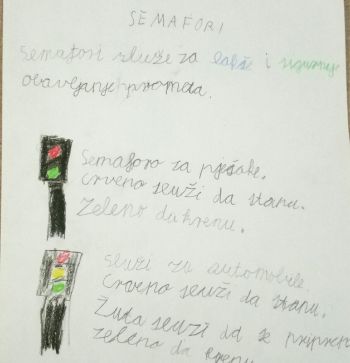 SEMAFORI
Semafori služe za lakše i sigurnije
obavljanje prometa.
Semaforo za pješake.
Crveno služi da stanu.
Zeleno da krenu.
Služi za automobile.
Crveno služi da stanu.
Žuta služi da se
zeleno da krenu.